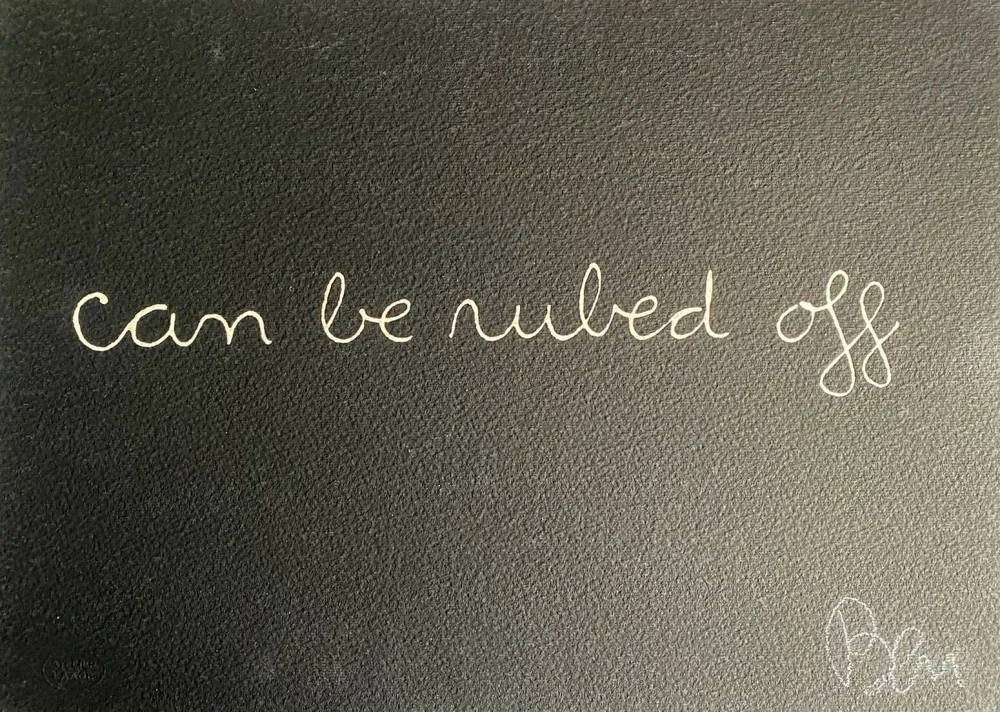 can be rubed off
Ben